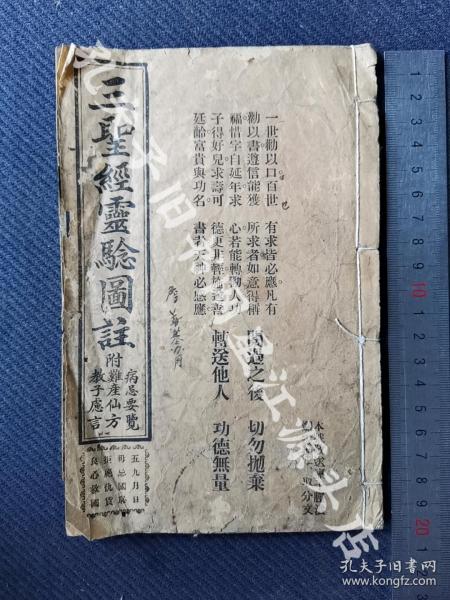 三聖經靈驗圖註
附
病忌要覽
難產仙方
教子處言
五九月日
毋忘國恥
拒絕仇貨
良心救國
一世勸以口百世
勸以書遵信能獲
福惜字自延年求
子得好兒求壽可
廷齡富貴與功名
有求皆必應凡有
所求者如意得稱
心若能轉勸人功
德更非輕施送善
書者天神必感應
閱過之後 切勿拋棄
轉送他人 功德無量
分文
10
20
孔夫子旧书网
www.kongfz.com